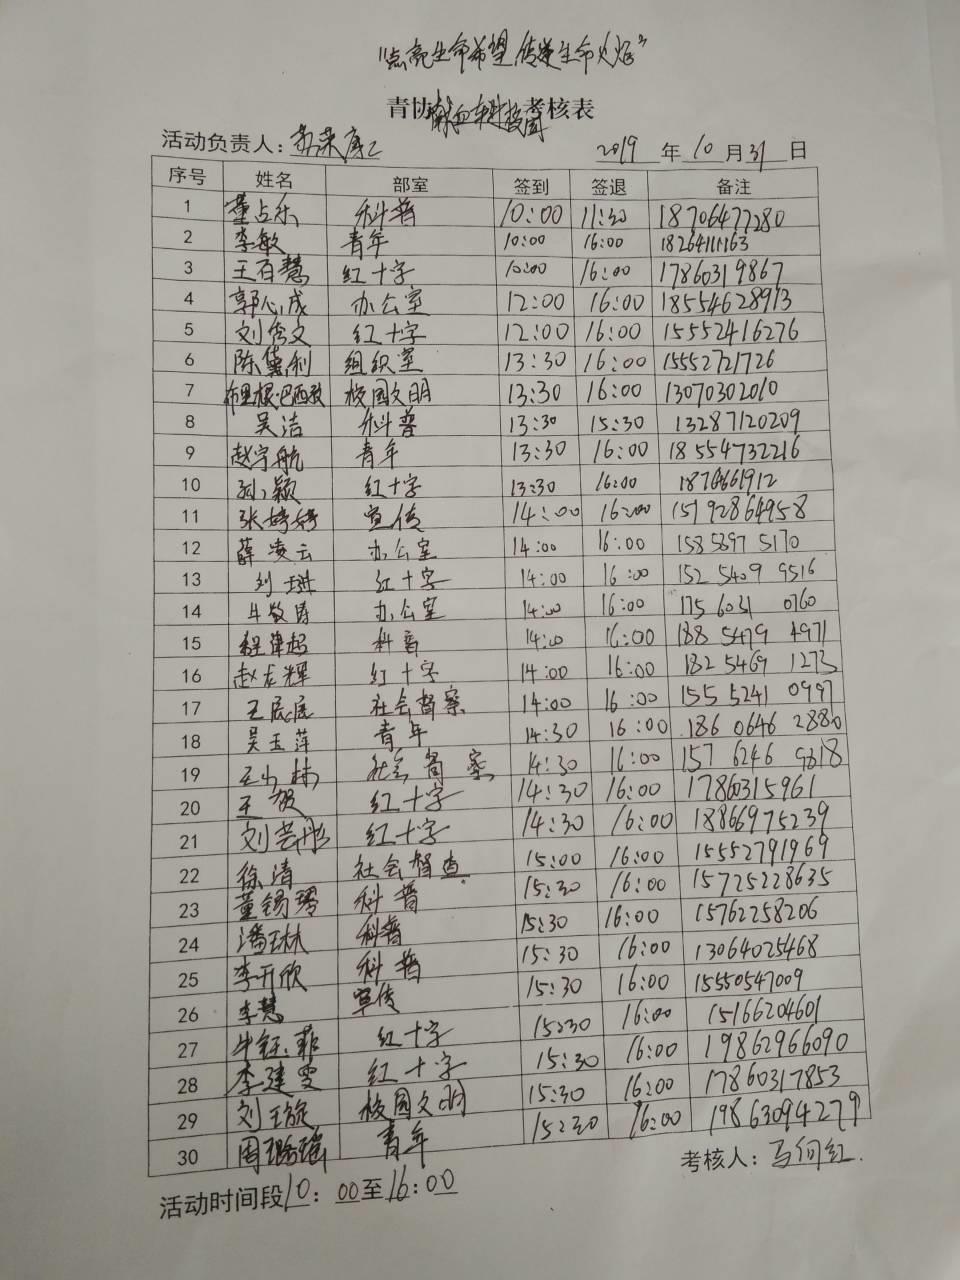 "点亮生命希望 传递生命火焰"
青协献血车科技园考核表
活动负责人： 2019 年 10 月 31 日
序号 姓名 部室 签到 签退 备注
1 董占乐 科普 10:00 11:30 18706477280
2 李敏 青年 10:00 16:00 18264111163
3 王百慧 红十字 10:00 16:00 17860319867
4 郭心成 办公室 12:00 16:00 18554628913
5 刘俊文 红十字 12:00 16:00 15552416276
6 陈黛利 组织室 13:30 16:00 15552721726
7 布里根·巴西 校园文明 13:30 16:00 13070302010
8 吴洁 科普 13:30 15:30 13287120209
9 赵宇航 青年 13:30 16:00 18554732216
10 孙颖 红十字 13:30 16:00
11 张婷婷 宣传 14:00 16:00 15192864958
12 薛凌云 办公室 14:00 16:00 158 5897 5170
13 刘琳 红十字 14:00 16:00 152 5409 9516
14 牛敬涛 办公室 14:00 16:00 175 6031 0760
15 程建超 科普 14:00 16:00 188 5479 4971
16 赵龙辉 红十字 14:00 16:00 182 5469 1273
17 王辰辰 社会督察 14:00 16:00 155 5241 0997
18 吴玉萍 青年 14:30 16:00 186 0646 2886
19 王小林 社会督察 14:30 16:00 157 6246 9818
20 王贺 红十字 14:30 16:00 17860315961
21 刘芸彤 红十字 14:30 16:00 18866975239
22 徐清 社会督查 15:00 16:00 15552791969
23 董锡琴 科普 15:30 16:00 15725228635
24 潘琳 科普 15:30 16:00 15762258206
25 李开欣 科普 15:30 16:00 13064025468
26 李慧 宣传 15:30 16:00 15550547009
27 牛钰菲 红十字 15:30 16:00 15166204601
28 李建雯 红十字 15:30 16:00 19862966090
29 刘玉璇 校园文明 15:30 16:00 17860317853
30 周璐瑶 青年 15:30 16:00 19863094279
考核人：马何红
活动时间段10：00至16：00